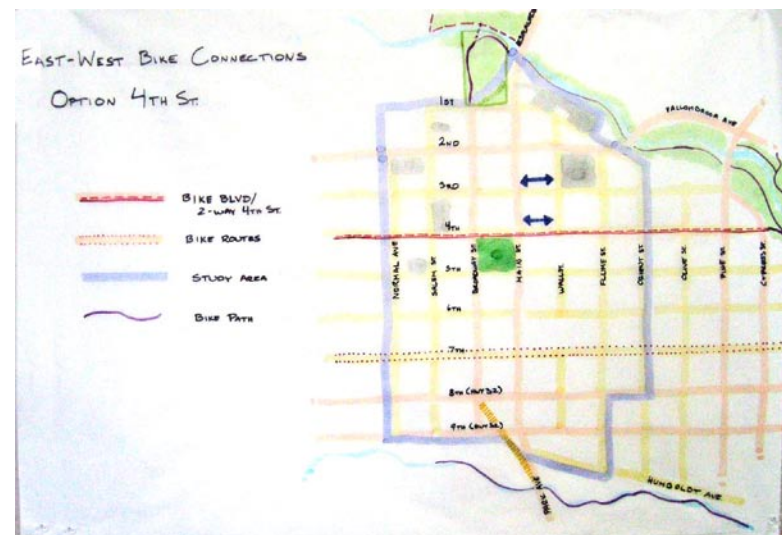 EAST-WEST BIKE CONNECTIONS
OPTION 4TH ST.
BIKE BLVD/
2-WAY 4TH ST.
BIKE ROUTES
STUDY AREA
BIKE PATH
1ST
2ND
3RD
4TH
5TH
6TH
7TH
8TH (HWY 32)
9TH (HWY 32)
NORMAL AVE
SALEM ST
BROADWAY ST.
MAIN ST.
WALL ST.
FLUME ST.
OLIVE ST.
PINE ST.
CYPRESS ST.
HUMBOLDT AVE
PARK AVE